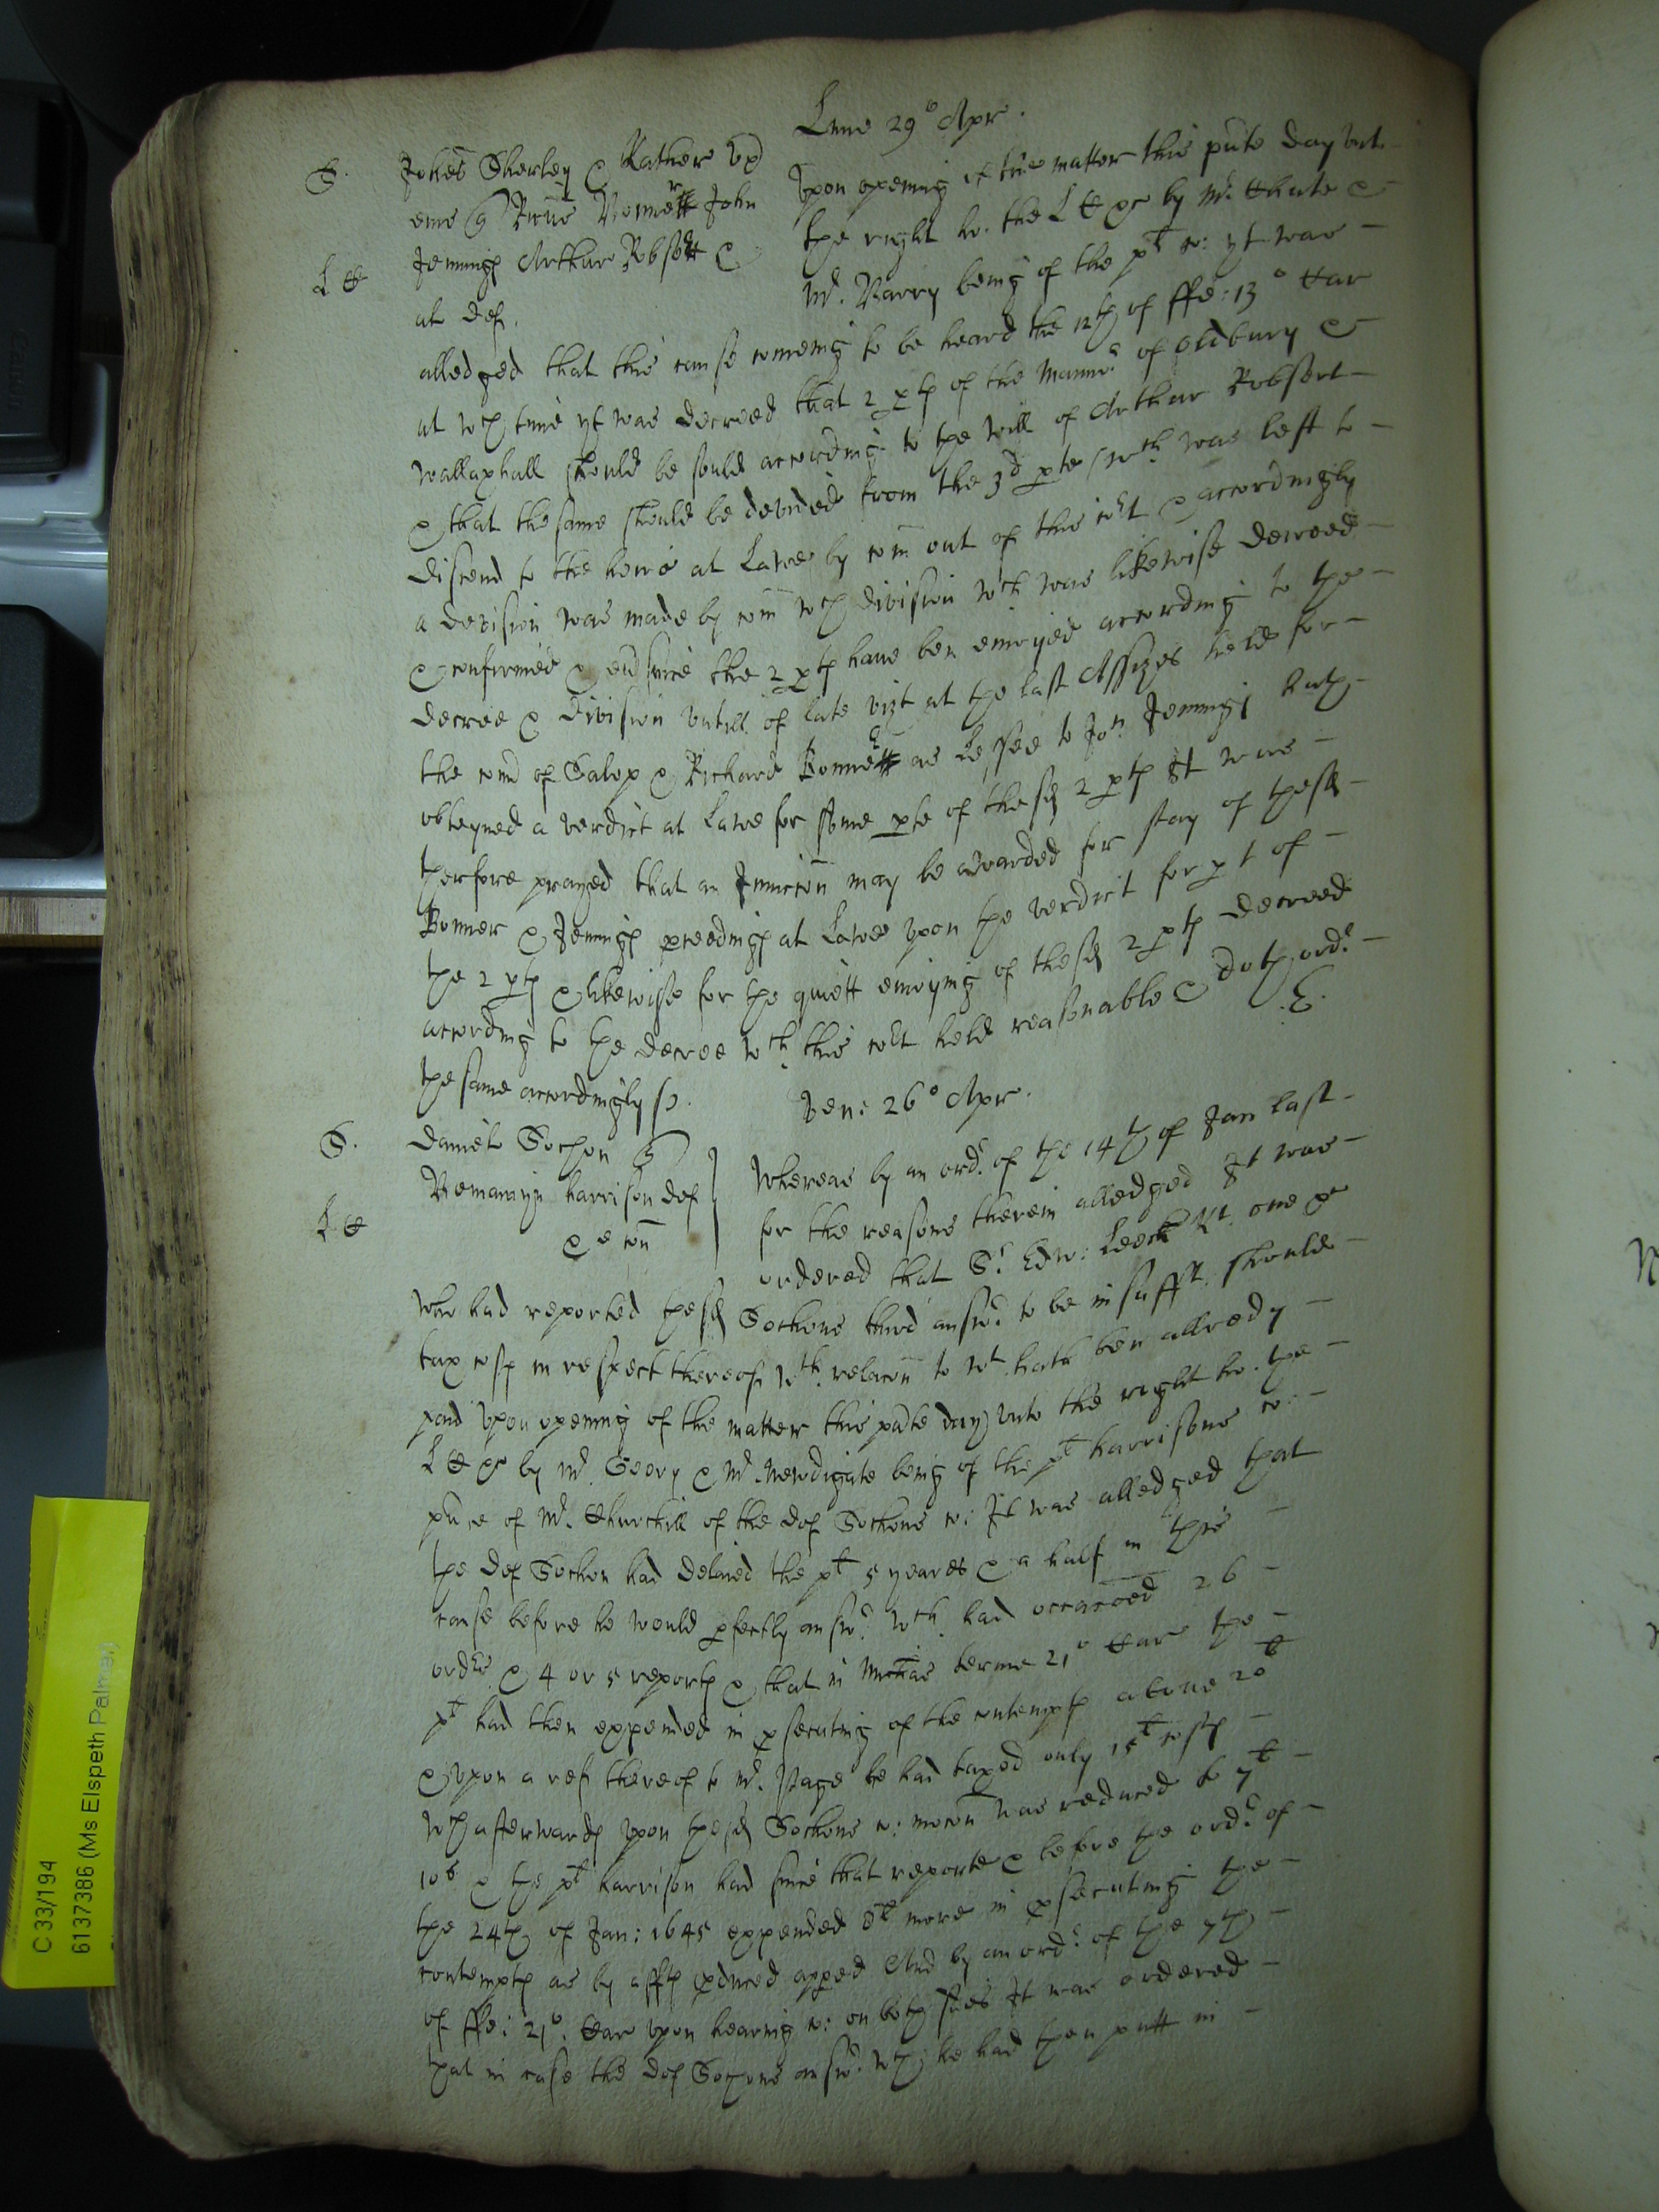 Lune 29° Apr.
S. Johes Sherley & Kather vx
eius Richus John
Jenings Arthur Robsett &
L C
al def.
Vpon opening of the matter this pnte day vnto
the right ho. the L C &c by Mr. Chute &
Mr. Barry being of the plt co: yt was
alledged that this cause comeing to be heard the 12th of ffe: 13° Car
at wch time yt was decreed that 2 pts of the Mannor of Oldbury &
Wallaxhall should be sould according to the will of Arthur Robsert
& that the same should be devided from the 3d pte wch was left to
discend to the heire at Lawe by com out of this cort & accordingly
a devision was made by com wch division wch was likewise decreed
& confirmed & eu since the 2 pts haue ben enioyed according to the
decree & division vntill of late vizt at the last Assizes held for
the com of Salop Richard as lessee to Jon Jenings hath
obteyned a verdict at Lawe for some pte of the sd 2 pts It was
therfore prayed that an Iniuncon may be awarded for stay of the sd
Bonner & Jenings pceedings at Lawe vpon the verdict for pt of
the 2 pts & likewise for the quiett enioying of the sd 2 pts decreed
according to the decree wch this cort held reasonable & doth ordr
the same accordingly
Ven: 26° Apr.
S. Daniell Sochon
Beniamyn Harrison def
L C
& e con
Whereas by an ordr of the 14th of Jan last
for the reasons therein alledged It was
ordered that Sr Edw: Leech Kt. one &c
Who had reported the sd Sochons third answr to be insufft. should
tax costs in respect thereof wth relacon to wt hath ben allredy
paid Vpon opening of the matter this pnte day vnto the right ho. the
L C &c by Mr. & Mr. Newdigate being of the plt Harrisons co:
pnce of Mr. Churchill of the def Sochons co: It was alledged that
the def Sochon had delaied the plt 5 yeares & a half in this
cause before he would pfectly answr wch had occaconed 26
ordrs & 4 or 5 reports & that in Michas terme 21° Car the
plt had then expended in psecuting of the contempts aboue 20l
& vpon a ref thereof to Mr. Page he had taxed only 15l costs
Wch afterwards vpon the sd Sochons co: mocon was reduced to 7l
10s & the plt Harrison had since that reporte & before the ordr of
the 24th of Jan: 1645 expended 8l more in psecuting the
contempts as by affts pduced apped And by an ordr of the 7th
of ffe: 21°. Car vpon hearing co: on both sides It was ordered
that in case the def Sochons answr. wch he had then putt in
C 33/194
6137386 (Ms Elspeth Palmer)